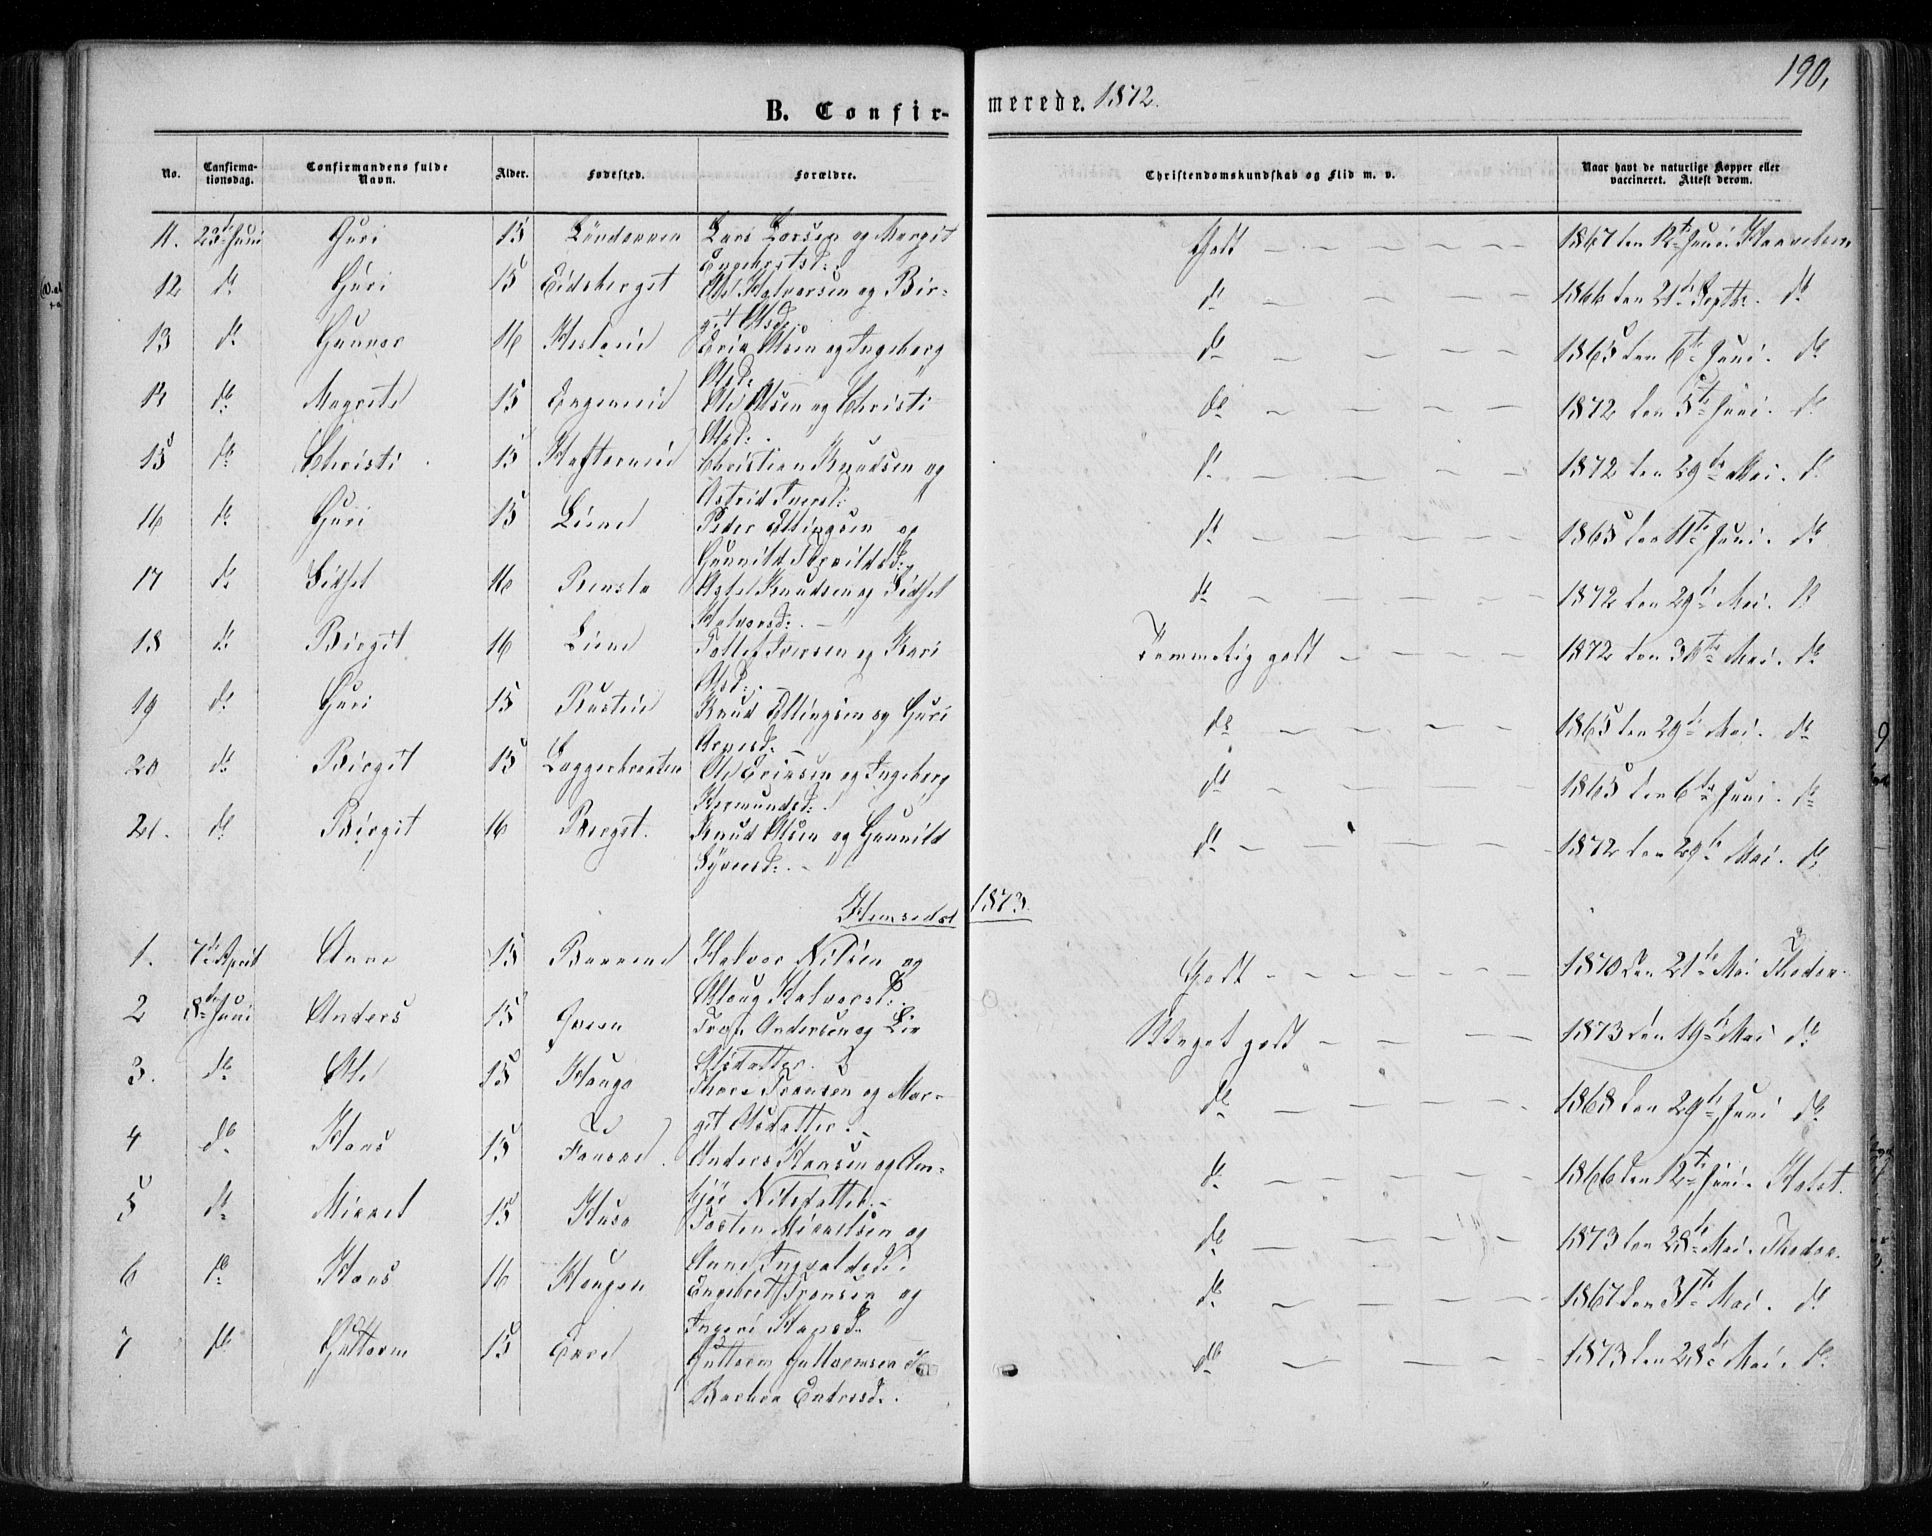 190,
B. Confirmerede. 1872.
No. Confirmationsdag. Confirmandens fulde Navn. Alder. Fødested. Forældre. Christendomskundskab og Flid m. v. Naar havt de naturlige Kopper eller vaccineret. Attest derom.
11. 23de Juni Guri 15 Lars Larsen og Margit Engebretsd: Godt — — — — — 1867 den 12te Juni.
12 do Guri 15 Eidsbergst Ole Halvorsen og Birgit Olsd: do — — — — — 1866 den 21de Septbr. do
13 do Gunnor 16 Erik Olsen og Ingeborg Olsd: do — — — — — 1865 den 6te Juni. do
14 do Magrete 15 Engeneie Ole Olsen og Christi Olsd: do — — — — — 1872 den 5te Juni. do
15 do Christi 15 Christian Knudsen og Astrid Iversd: do — — — — — 1872 den 29de Mai. do
16 do Guri 15 Liene Peder Ellingsen og Gunnild do — — — — — 1865 den 11te Juni. do
17 do Sidsel 16 Rensla Asle Knudsen og Sidsel Halvorsd: do — — — — — 1872 den 29de Mai. do
18 do Birgit 16 Liene Tollef Iversen og Kari Olsd: Temmelig godt — — — — 1872 den 30te Mai. do
19 do Guri 15 Rusteie Knud Ellingsen og Guri Arnesd. do — — — — — 1865 den 29de Mai. do
20 do Birgit 15 Ole Eriksen og Ingeborg Hermundsd: do — — — — — 1865 den 6te Juni. do
21. do Birgit 16 Bergst. Knud Olsen og Gunnild Syversd: do — — — — — 1872 den 29de Mai. do
Hemsedal 1873.
1. 7de April Anne 15 Bakkene Halvor Nilsen og Aslaug Halvorsd: Godt — — — — — 1870 den 21de Mai Thedor
2 8de Juni Anders 15 Grøen Trond Andersen og Liv Olsdatter. Meget godt — — — 1873 den 19de Mai do
3. do Ole 15 Hauga Thore Tronsen og Margit Olsdatter. do — — — — — 1868 den 29de Juni do
4 do Hans 15 Fauske. Anders Hansen og Ambjør Nilsdatter do — — — — — 1866 den 12te Juni. Holst.
5 do Mikkel 15 Husa Torsten Mikkelsen og Anne Ingvaldsd: do — — — — — 1873 den 28de Mai. Thedor.
6 do Hans 16 Haugen Engebret Tronsen og Ingeri Hansd. do — — — — — 1867 den 31te Mai. do
7 do Guttorm 15 Ekre Guttorm Guttormsen og Barbra Endresd. do — — — — — 1873 den 28de Mai. do